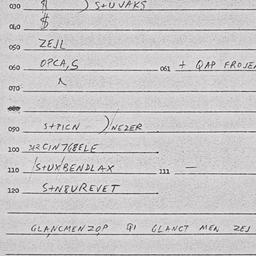 030 $ )S+UVAKS
040 $
050 ZEJL
060 OPCA,S 061 + QAP FROJEN
070
080
090 S+PICN )NEZER
100
110 /S+UX/BENDLAX 111 —
120 S+N8UREVET
GLANCMENZOP QI GLANCT MEN ZEJ